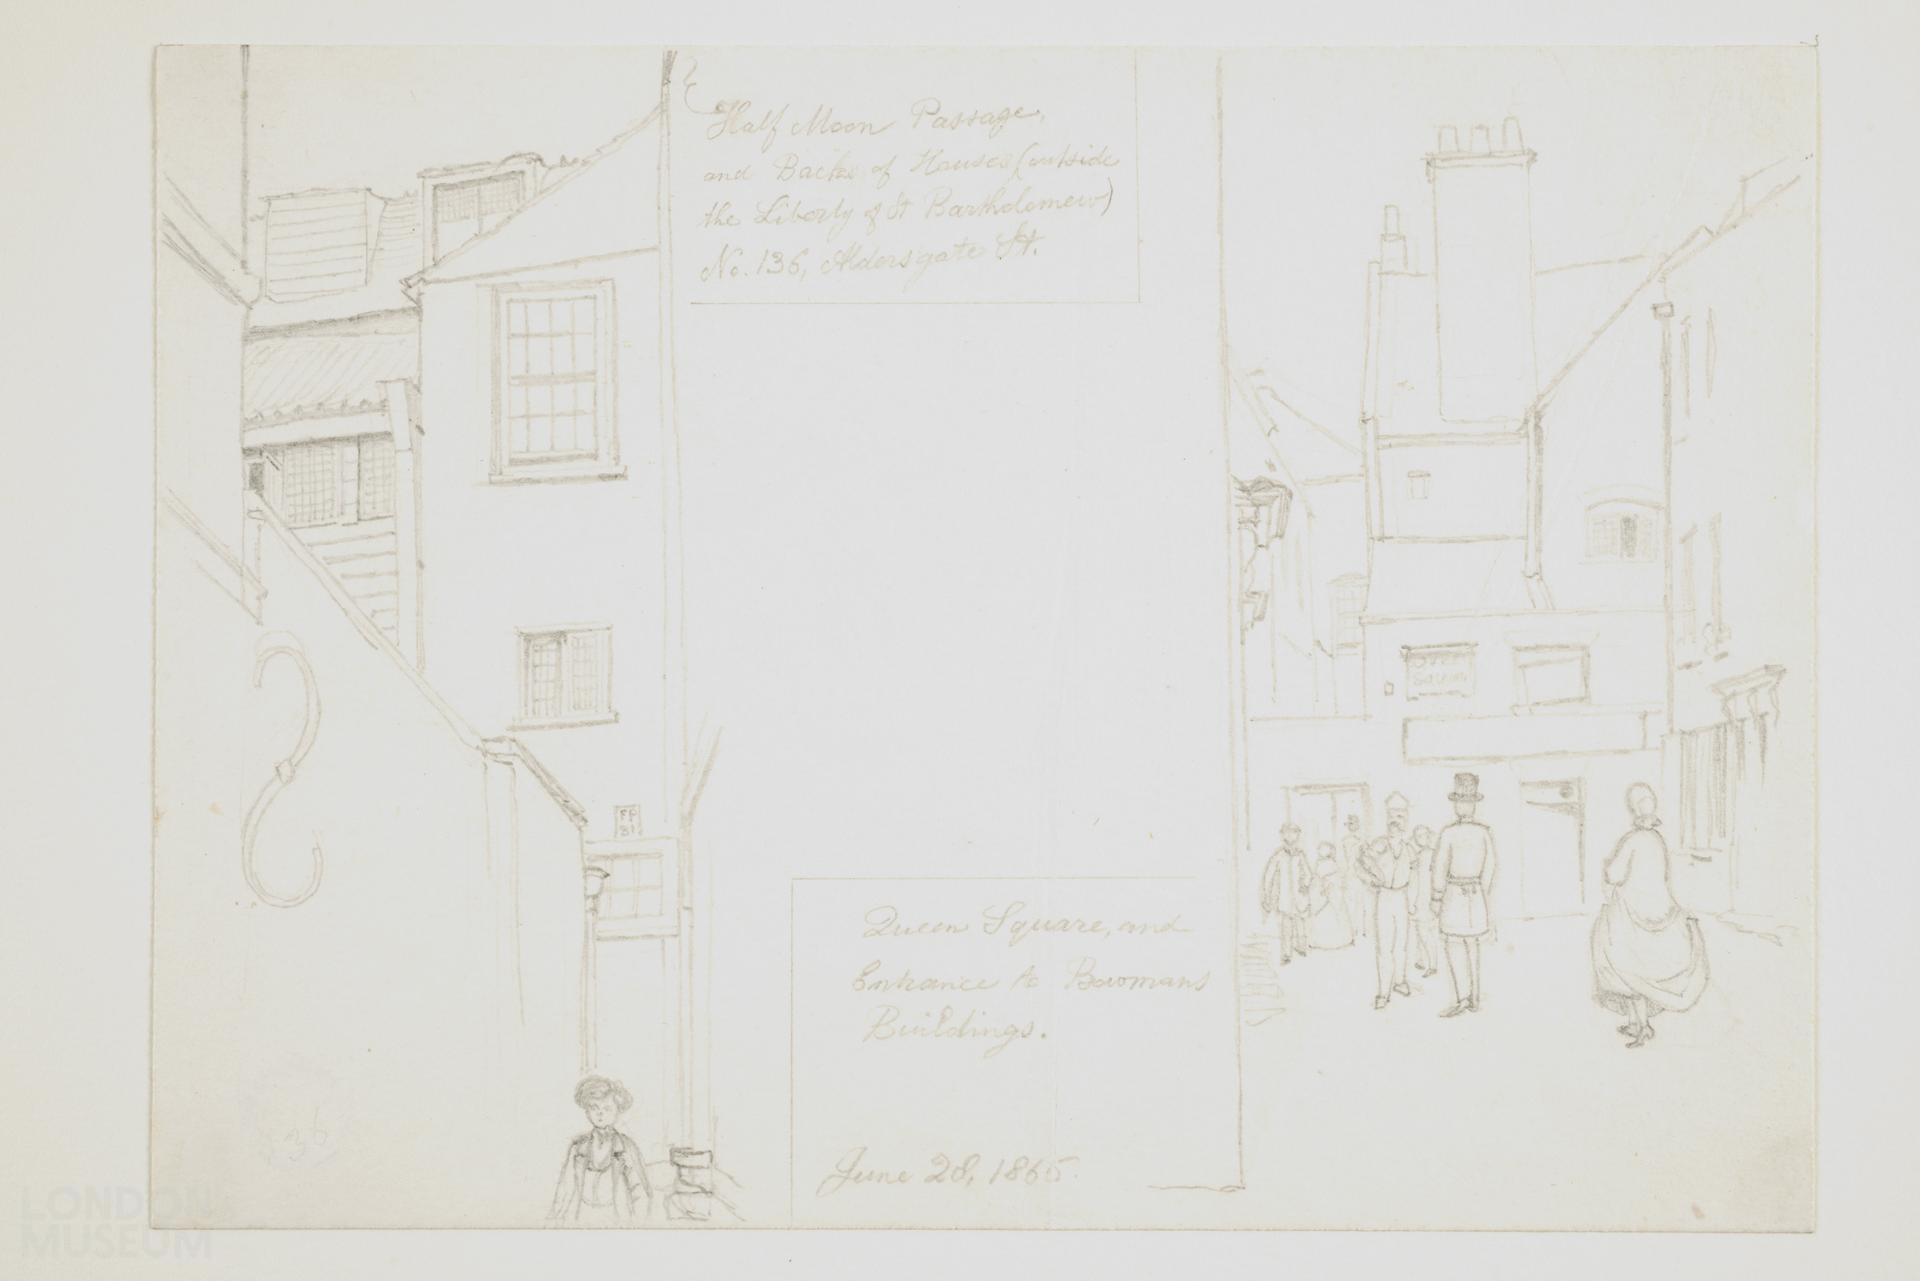 Half Moon Passage,
and Backs of Houses (outside
the Liberty of St Bartholomew)
No. 136, Aldersgate St.
FP
81
Queen Square, and
Entrance to Bowmans
Buildings.
June 28, 1865.
36
LONDON
MUSEUM